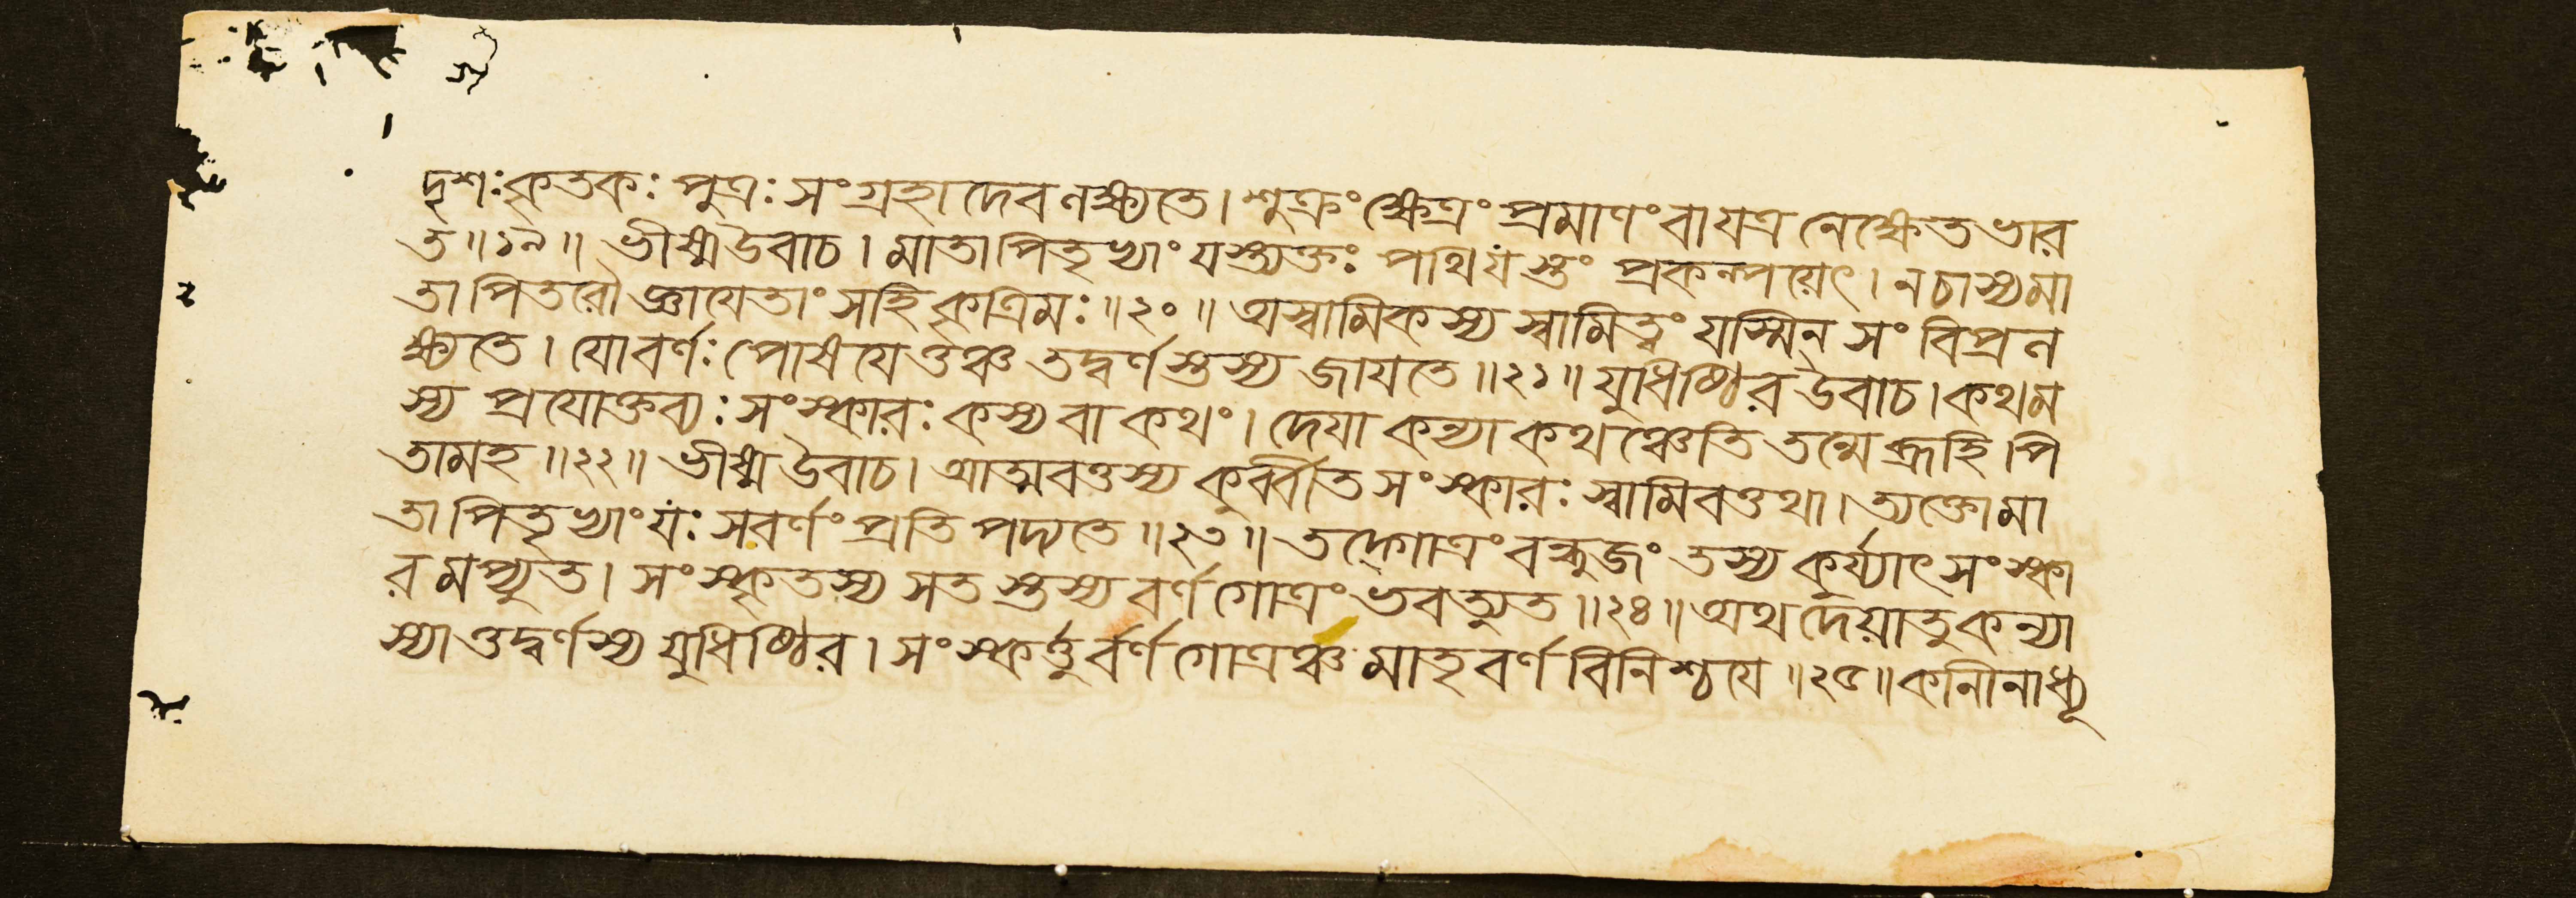 দৃশঃ কৃতকঃ পুত্রঃ সংগ্রহাদেব লক্ষ্যতে। শুক্রং ক্ষেত্রং প্রমাণং বা যত্র লেক্ষেত ভার
ত॥১৯॥ ভীষ্ম উবাচ। মাতাপিতৃভ্যাং যস্ত্যক্তঃ পথি যংস্তুং প্রকল্পয়েৎ। ন চাস্য মা
তাপিতরৌ জ্ঞায়েতাং স হি কৃত্রিমঃ॥২০॥ অস্বামিকস্য স্বামিত্বং যস্মিন্ সংবিপ্রল
ক্ষ্যতে। যো বর্ণঃ পোষয়েত্তঞ্চ তদ্বর্ণস্তস্য জায়তে॥২১॥ যুধিষ্ঠির উবাচ। কথম
স্য প্রযোক্তব্যঃ সংস্কারঃ কস্য বা কথং। দেয়া কন্যা কথঞ্চেতি তন্মে ব্রূহি পি
তামহ॥২২॥ ভীষ্ম উবাচ। আত্মবত্তস্য কুর্ব্বীত সংস্কারঃ স্বামিবত্তথা। ত্যক্তো মা
তাপিতৃভ্যাং যঃ সবর্ণং প্রতিপদ্যতে॥২৩॥ তদ্গোত্রং বন্ধুজং তস্য কুর্য্যাৎ সংস্কা
রমপ্যুত। সংস্কৃতস্য সতস্তস্য বর্ণগোত্রং ভবত্যুত॥২৪॥ অথ দেয়া তু কন্যা
স্যাত্তদ্বর্ণস্য যুধিষ্ঠির। সংস্কর্ত্তুর্বর্ণগোত্রঞ্চ মাতৃবর্ণবিনিশ্চয়ে॥২৫॥ কানীনাধ্যূ